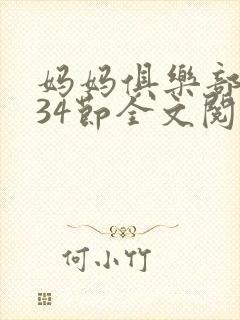 妈妈俱樂部
34節全文閱
何小竹